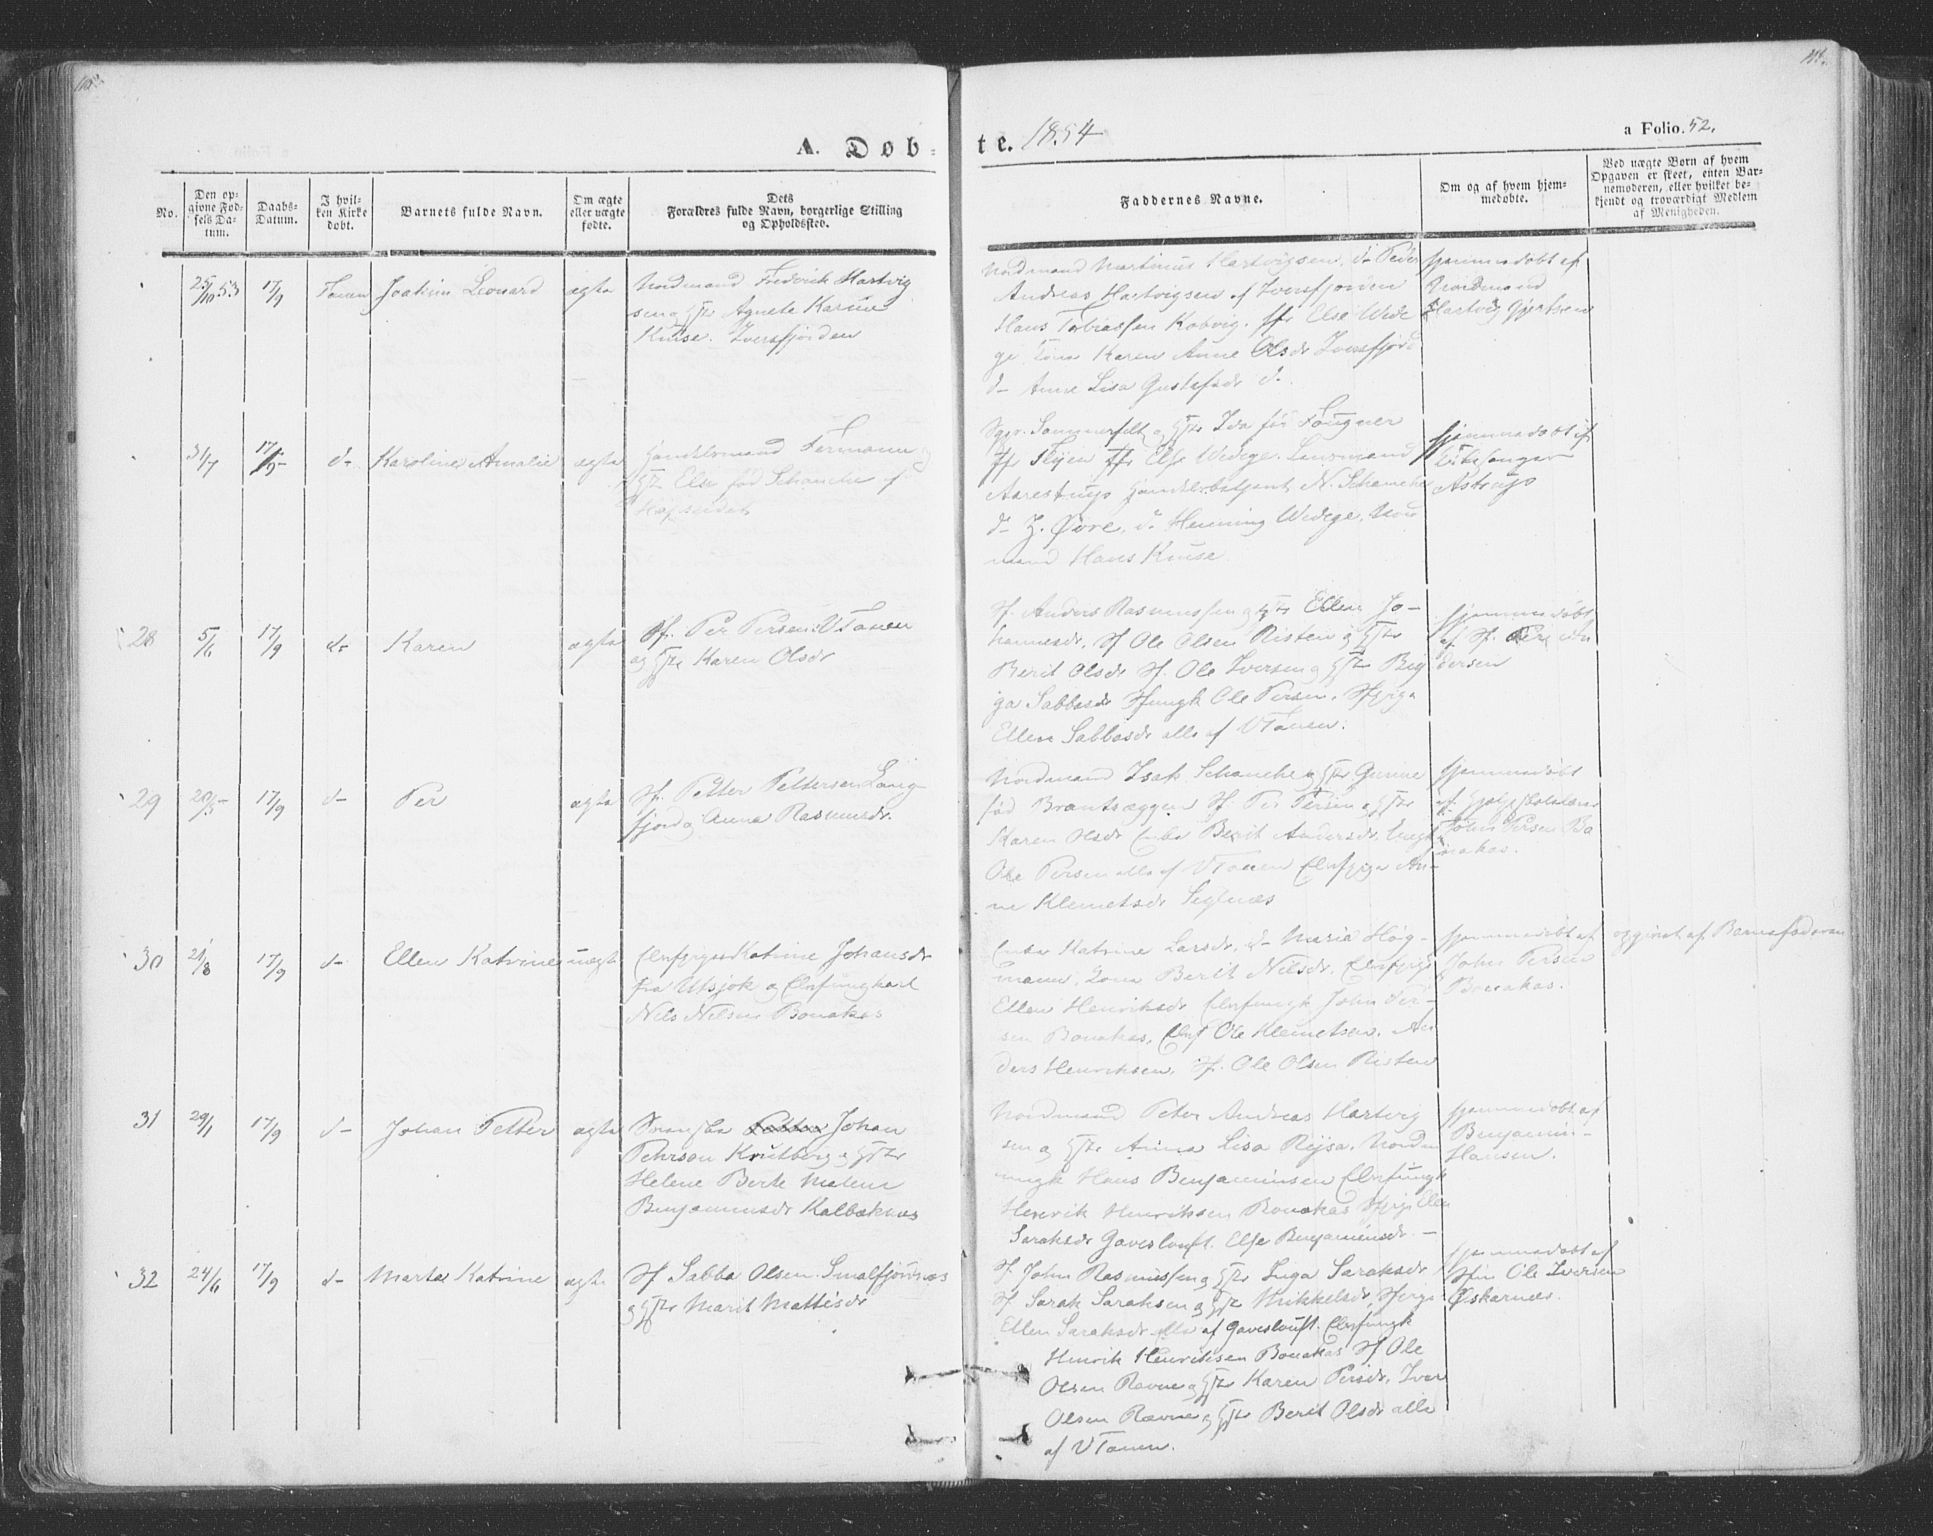 A. Døb-
te. 1854
a Folio. 52.
No.
Den op-
givne Fød-
sels Da-
tum.
Daabs-
Datum.
I hvil-
ken Kirke
døbt.
Barnets fulde Navn.
Om ægte
eller uægte
fødte.
Dets
Forældres fulde Navn, borgerlige Stilling
og Opholdssted.
Faddernes Navne.
Om og af hvem hjem-
medøbte.
Ved uægte Børn af hvem
Opgaven er skeet, enten Bar-
nemoderen, eller hvilket be-
kjendt og troværdigt Medlem
af Menigheden.
25/10 53
17/9
Tanen
Joakim Leonard
ægte
Nordmand Frederik Hartvig
sen og Hstr Agnete Karine
Kruse. Iversfjorden
Nordmand Martinus Hartvigsen, d- Peder
Andreas Hartvigsen af Iversfjorden
Hans Tobiassen Kobvig, Jfr Else Wede
ge Kone Karen Anne Olsdr Iversfjord
d- Anne Lisa Gustafsdr d-
hjemmedøbt af
Nordmand
Hartvig Gjertsen
31/7
17/9
d-
Karoline Amalie
ægte
Handelsmand Fermann og
Hstr Else født Schanche af
Hopseidet
Sgpr. Sommerfelt og Hstr Ida fød Fougner
Jfr Else Wedege. Lensmand
Aarestrup Handelsbetjent N. Schanche
d- Z. Øvre, d- Henning Wedege, Nord
mand Hans Kruse
hjemmedøbt af
Kirkesanger
Astrup
28
5/6
17/9
d-
Karen
ægte
Sf. Per Persen VTanen
og Hstr Karen Olsdr
Sf. Anders Rasmussen og Hstr Ellen Jo-
hannesdr, Sf Ole Olsen Risten og Hstr
Berit Olsdr Sf. Ole Iversen og Hstr Big
ga Sabbasdr Sfungk Ole Persen, Sfpiga
Ellen Sabbasdr alle af VTanen.
hjemmedøbt
af Sf. Per An
dersen
29
20/5
17/9
d-
Per
ægte
Sf. Petter Pettersen Lang-
fjord og Anna Rasmusdr.
Nordmand Isak Schanche og Hstr Gunne
fød Brantsæggen Sf Per Persen og Hstr
Karen Olsdr Enke Berit Andersdr, Ungk
Ole Persen alle af VTanen Elvfpiga An-
ne Klemetsdr Seglnæs
hjemmedøbt
af Hjelpeskolelærer
John Persen Bo
nakas.
30
21/8
17/9
d-
Ellen Katrine
uægte
Elvfpigen Katrine Johansdr
fra Utsjok og Elvfungkarl
Nils Nilsen Bonakas
Enke Katrine Larsdr, d- Maria Høg-
mann, Kona Berit Nilsdr, Elvfpige
Ellen Henriksdr Elvfungk John Per-
sen Bonakas, Elvf Ole Klemetsen, An
ders Henriksen, Sf. Ole Olsen Risten
hjemmedøbt af
John Persen
Bonakas.
opgivet af Barnefaderen
31
29/1
17/9
d-
Johan Petter
ægte
Svenske Johan
Pehrson Krutberg og Hstr
Helene Berte Malene
Benjaminsdr Kalbaknes
Nordmand Peter Andreas Hartvig
sen og Hstr Anna Lisa Rejsa. Nordm
ungk Hans Benjaminsen Elvfungk
Henrik Henriksen Bonakas Sfpige Ellen
Saraksdr Gavesluuft. Else Benjaminsdr. -
hjemmedøbt af
Benjamin
Hansen.
32
24/6
17/9
d-
Marta Katrine
ægte
Sf Sabba Olsen. Smalfjordnes
og Hstr Marit Mattisdr
Sf. John Rasmussen og Hstr Inga Saraksdr
Sf. Sarak Saraksen og Hstr Mikkelsdr, Sfpige
Ellen Saraksdr alle af Gavesluuft. Elvfungk
Henrik Henriksen Bonakas Sf Ole
Olsen Ravna og Hstr Karen Persdr, Iver
Olsen Ravna og Hstr Berit Olsdr alle
af VTanen.
hjemmedøbt af
Ole Iversen
Øskarnes.